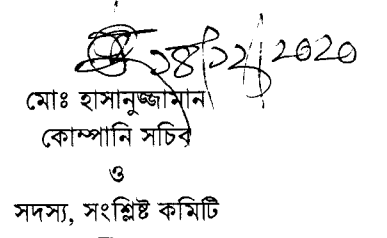 ১৪/১২/২০২০
মোঃ হাসানুজ্জামান
কোম্পানি সচিব
ও
সদস্য, সংশ্লিষ্ট কমিটি